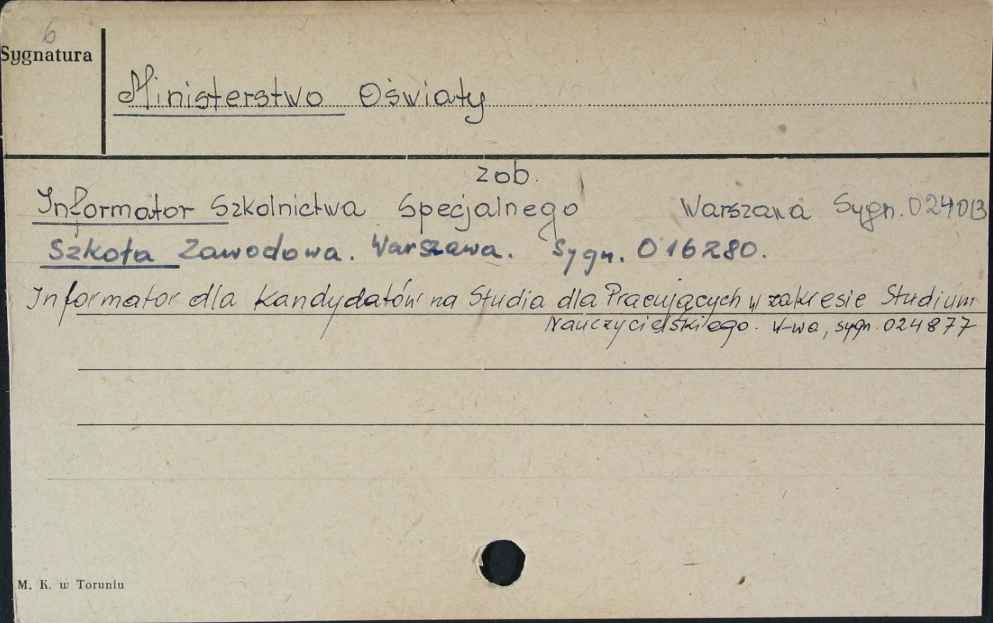 6
Sygnatura
Ministerstwo Oświaty
zob.
Informator Szkolnictwa Specjalnego Warszawa Sygn. 024013
Szkoła Zawodowa. Warszawa. Sygn. 016280.
Informator dla kandydatów na Studia dla Pracujących w zakresie Studium
Nauczycielskiego. W-wa, sygn. 024877
M. K. w Toruniu